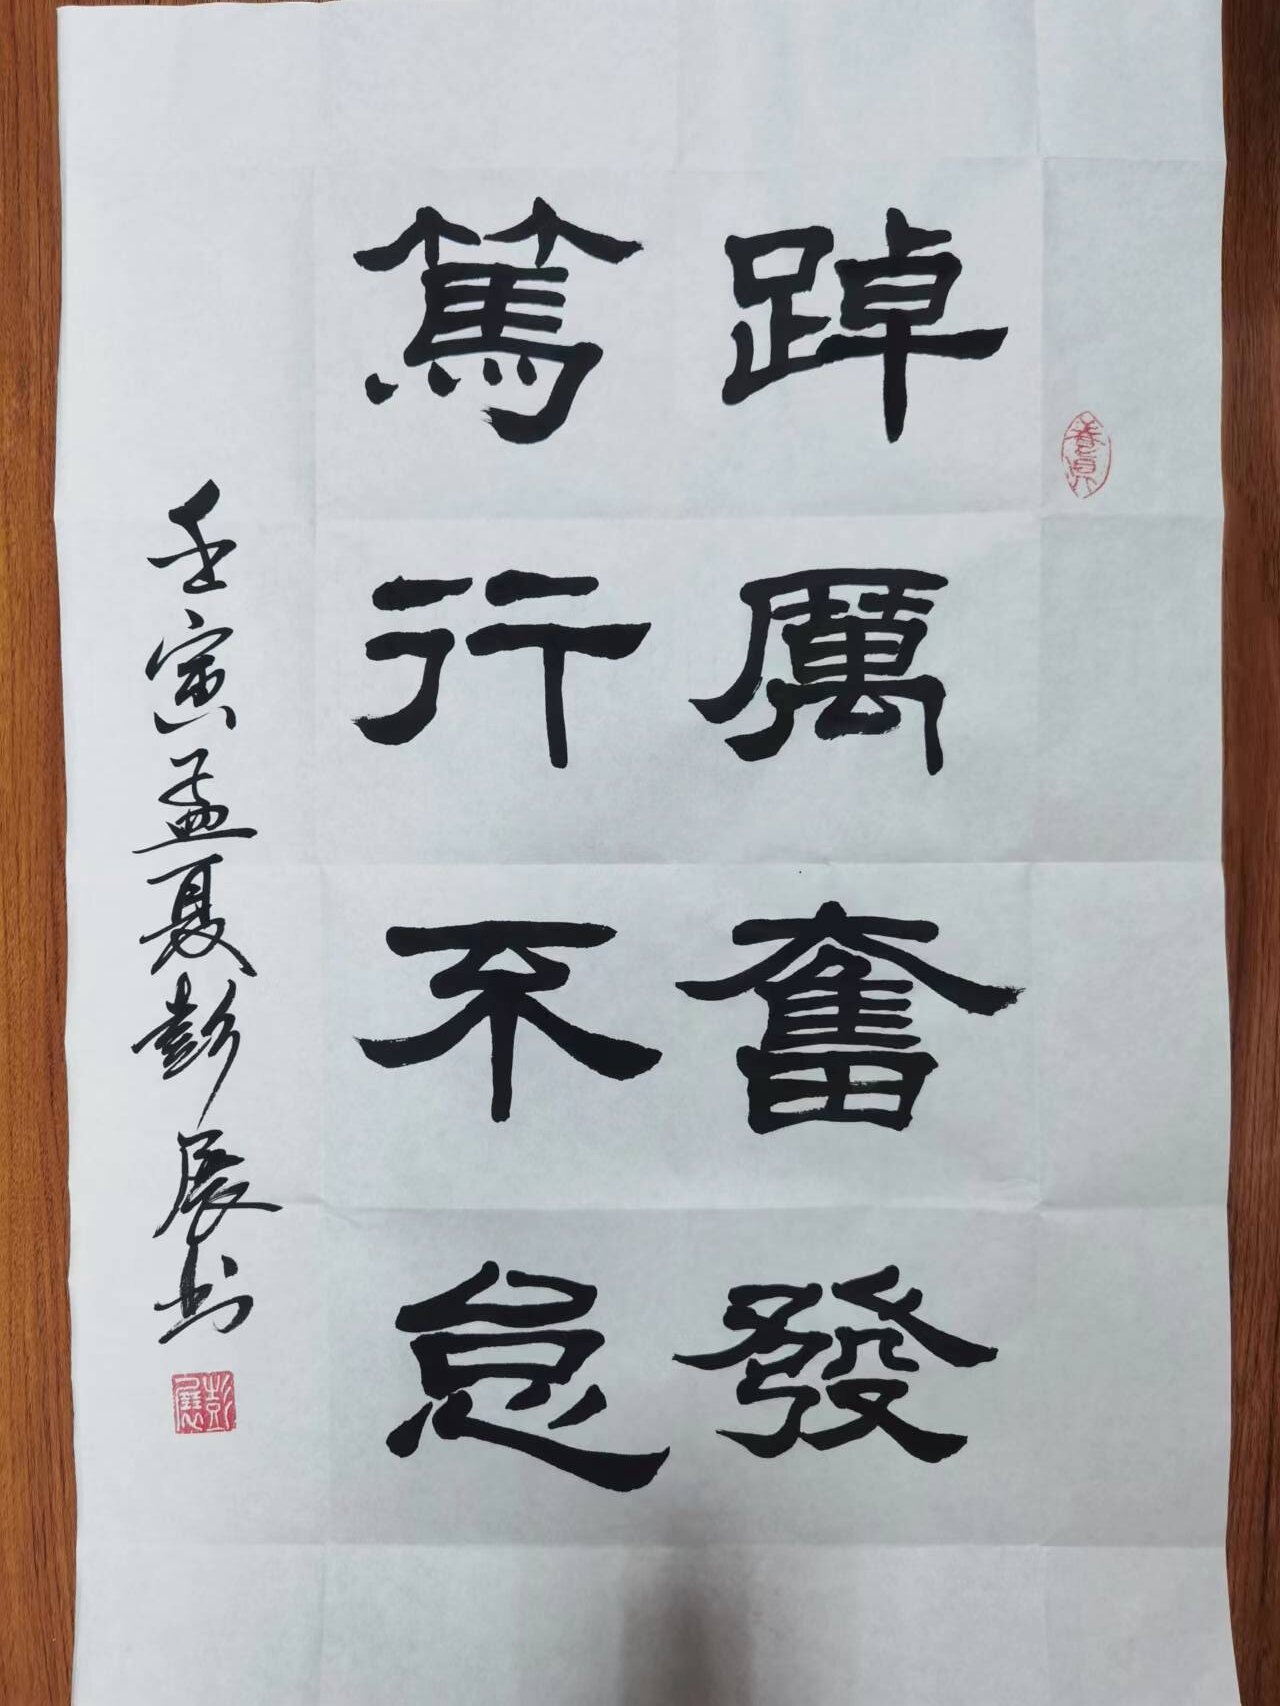 踔厲奮發
篤行不怠
壬寅孟夏彭展书
彭展